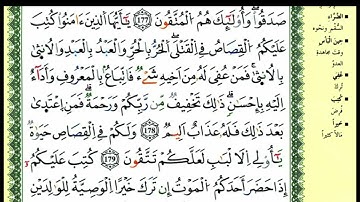 صَدَقُواْ وَأُوْلَٰٓئِكَ هُمُ اُلْمُتَّقُونَ 177 يَٰٓأَيُّهَا اَلذِينَ ءَامَنُواْ كُتِبَ
عَلَيْكُمُ اُلْقِصَاصُ فِي اِلْقَتْلَى اَلْحُرُّ بِالْحُرِّ وَالْعَبْدُ بِالْعَبْدِ وَالُانثَىٰ
بِالُانثَىٰ فَمَنْ عُفِيَ لَهُۥ مِنَ اَخِيهِ شَيْءٌ فَاتِّبَاعٌۢ بِالْمَعْرُوفِ وَأَدَآءٌ
اِلَيْهِ بِإِحْسَٰنٍ ذَٰلِكَ تَخْفِيفٌ مِّن رَّبِّكُمْ وَرَحْمَةٌ فَمَنِ اِعْتَدَىٰ
بَعْدَ ذَٰلِكَ فَلَهُۥ عَذَابٌ اَلِيمٌ 178 وَلَكُمْ فِي اِلْقِصَاصِ حَيَوٰةٌ
يَٰٓأُوْلِي اِلَالْبَٰبِ لَعَلَّكُمْ تَتَّقُونَ 179 كُتِبَ عَلَيْكُمُۥٓ
إِذَا حَضَرَ أَحَدَكُمُ اُلْمَوْتُ إِن تَرَكَ خَيْراً اِلْوَصِيَّةُ لِلْوَٰلِدَيْنِ
الضَّرَّآءِ
السُّقم ونحوِه
حِينَ اَلْبَأْسِ
وقت مجاهدة
العدوّ
عُفِيَ
تُرِكَ
كُتِبَ
فُرِضَ
خَيْراً
مَالاً كثيراً